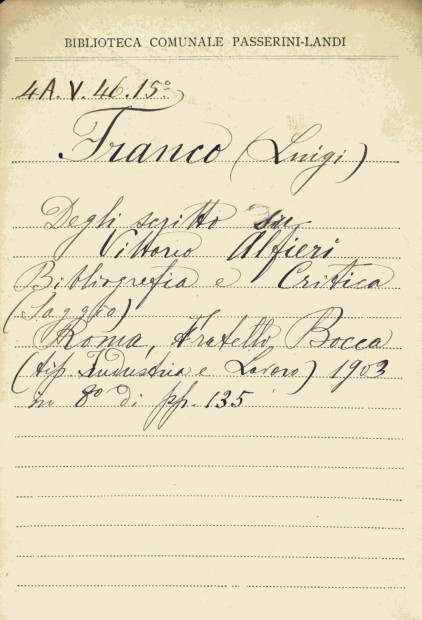 BIBLIOTECA COMUNALE PASSERINI-LANDI
4A. V. 46. 15º
Franco (Luigi)
Degli scritto su
Vittorio Alfieri
Bibliografia e Critica
(Saggio)
Roma, Fratello Bocca
(tip. Industria e Lavoro) 1903
in 8º di pp. 135